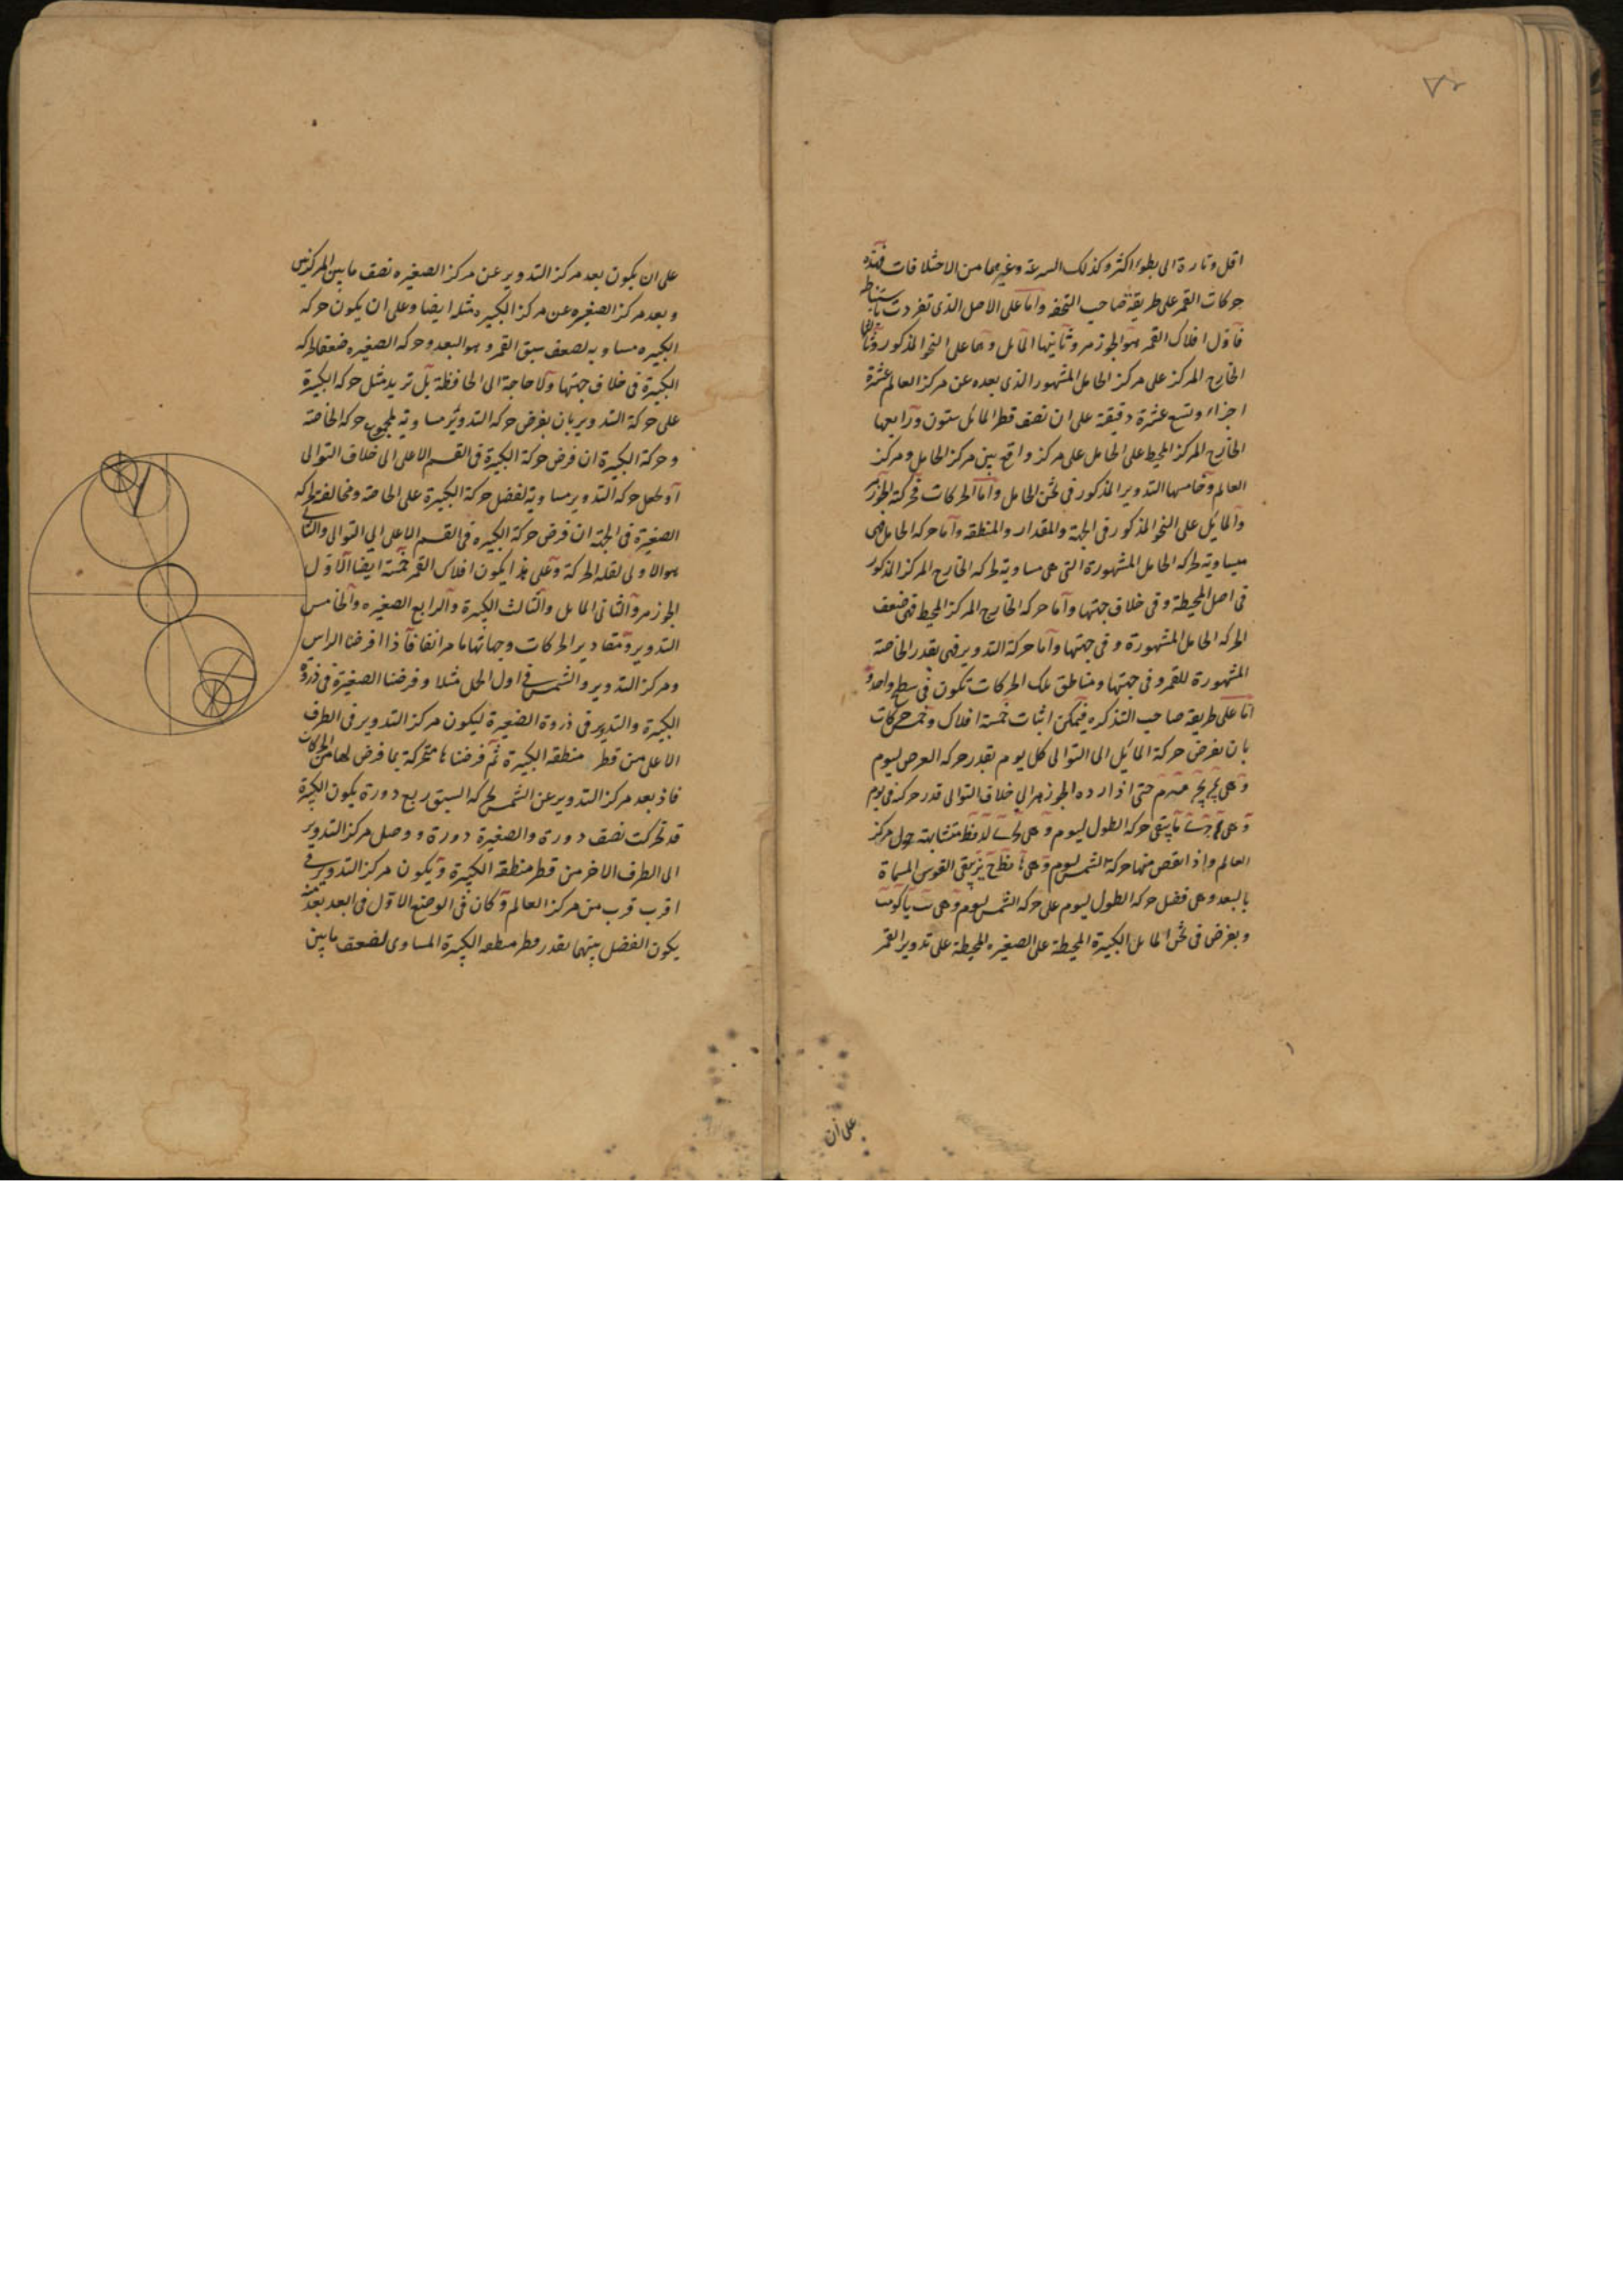 ٧٢
اقل وتارة الى بطوء اكثر وكذلك السرعة وغيرهما من الاختلافات فهذه
حركات القمر على طريقة صاحب التحفه واما على الاصل الذى تفردت باستنباطه
فاول افلاك القمر هو الجوزهر وثانيها المايل وهما على النحو المذكور وثالثها
الخارج المركز على مركز الحامل المشهور الذى بعده عن مركز العالم عشرة
اجزاء وتسع عشرة دقيقة على ان نصف قطر المائل ستون ورابعها
الخارج المركز المحيط على الحامل على مركز واقع بين مركز الحامل ومركز
العالم وخامسها التدوير المذكور فى ثخن الحامل واما الحركات فحركة الجوزهر
والمايل على النحو المذكور فى الجهة والمقدار والمنطقه واما حركه الحامل فهى
مساوية لحركه الحامل المشهورة التى هى مساوية لحركه الخارج المركز المذكور
فى اصل المحيطة وفى خلاف جهتها واما حركه الخارج المركز المحيط فهى ضعف
الحركه الحامل المشهورة وفى جهتها واما حركة التدوير فهى بقدر الخاصة
المشهورة للقمر وفى جهتها ومناطق تلك الحركات تكون فى سطح واحد و
اما على طريقة صاحب التذكره فيمكن اثبات خمسة افلاك وخمس حركات
بان نفرض حركة المائل الى التوالى كل يوم بقدر حركه العرض ليوم
وهى حتى اذا رده الجوزهر الى خلاف التوالى قدر حركته فى يوم
وهى يبقى حركه الطول ليوم وهى متشابهة حول مركز
العالم واذا نقص منها حركة الشمس ليوم وهى يبقى القوس المسماة
بالبعد وهى فضل حركه الطول ليوم على حركه الشمس ليوم وهى
وبفرض فى ثخن المايل الكبيرة المحيطة على الصغيره المحيطة على تدوير القمر
على ان
على ان يكون بعد مركز التدوير عن مركز الصغيره نصف ما بين المركزين
وبعد مركز الصغيره عن مركز الكبيره مثله ايضا وعلى ان يكون حركه
الكبيره مساويه لضعف سبق القمر وهو البعد وحركه الصغيره ضعف لحركه
الكبيرة فى خلاف جهتها ولا حاجة الى الحافظة بل تزيد مثل حركه الكبيرة
على حركة التدوير بان نفرض حركه التدوير مساوية لمجموع حركه الخاصة
وحركة الكبيرة ان فرض حركة الكبيرة فى القسم الاعلى الى خلاف التوالى
او نجعل حركه التدوير مساوية لفضل حركة الكبيرة على الخاصة ومخالفة لحركه
الصغيرة فى الجهة ان فرض حركة الكبيره فى القسم الاعلى الى التوالى والثانى
هو الاولى لقلة الحركة وعلى هذا يكون افلاك القمر خمسة ايضا الاول
الجوزهر والثانى المايل والثالث الكبيرة والرابع الصغيره والخامس
التدوير ومقادير الحركات وجهاتها ما مر انفا فاذا فرضنا الراس
ومركز التدوير والشمس فى اول الحمل مثلا وفرضنا الصغيرة فى ذروة
الكبيرة والتدوير فى ذروة الصغيرة ليكون مركز التدوير فى الطرف
الاعلى من قطر منطقه الكبيرة ثم فرضناها متحركة بما فرض لها من الحركات
فاذ بعد مركز التدوير عن الشمس بحركه السبق ربع دورة يكون الكبيرة
قد تحركت نصف دورة والصغيرة دورة ووصل مركز التدوير
الى الطرف الاخر من قطر منطقه الكبيرة ويكون مركز التدوير فى
اقرب قرب من مركز العالم وكان فى الوضع الاول فى ابعد بعد منه
يكون الفضل بينهما بقدر قطر منطقه الكبيرة المساوى لضعف ما بين